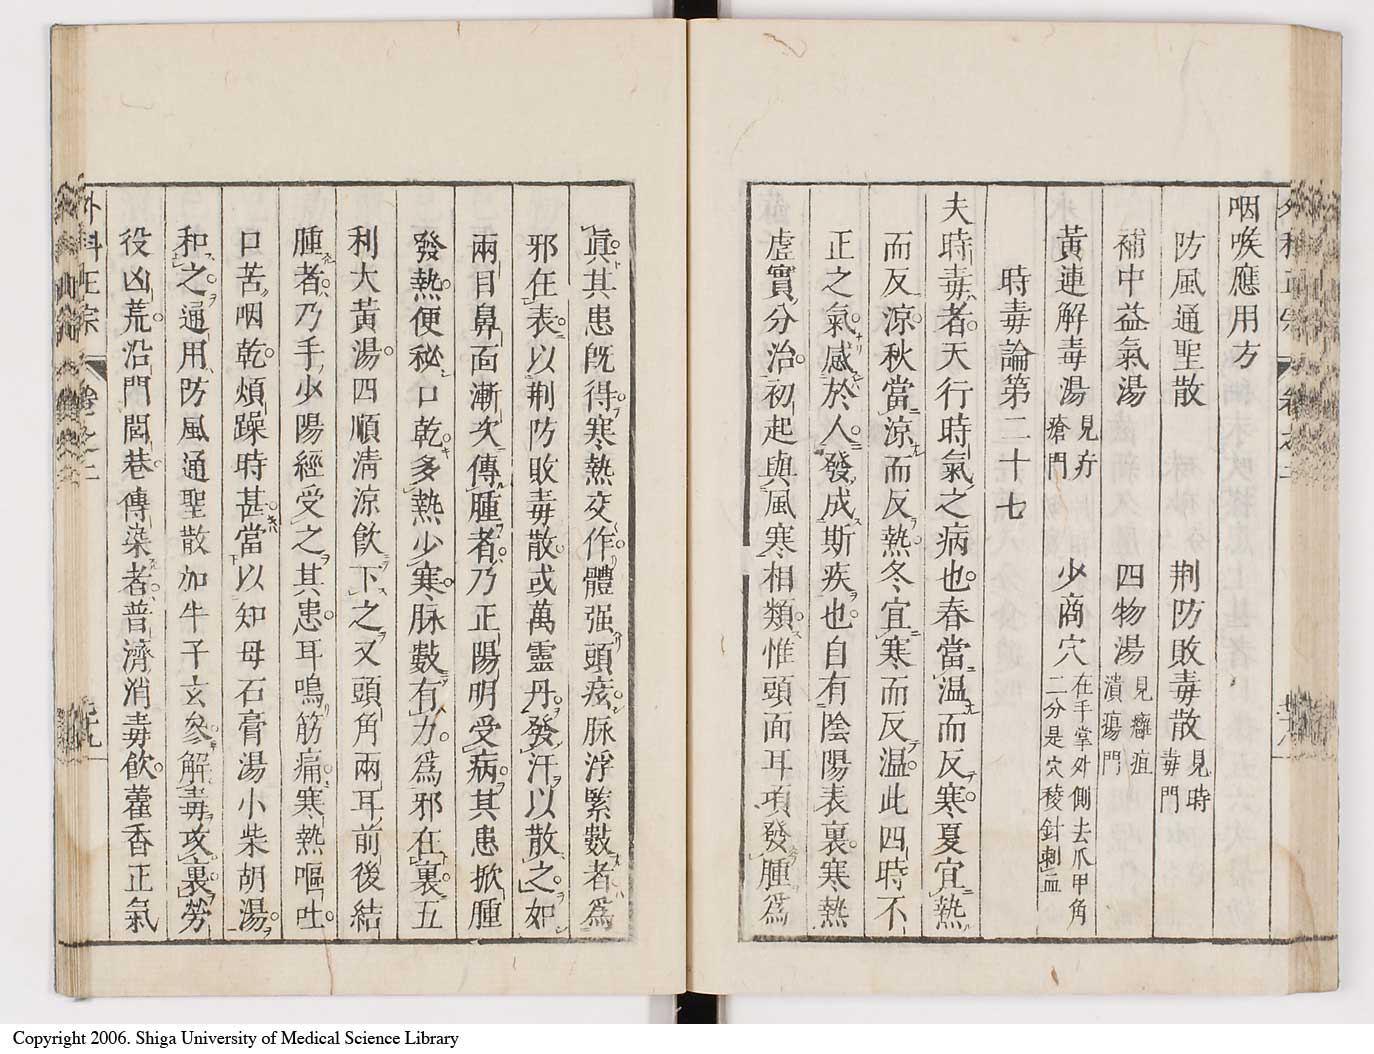 咽喉應用方
防風通聖散　荆防敗毒散見時毒門
補中益氣湯　四物湯見癰疽潰瘍門
黃連解毒湯見疔瘡門　少商穴在手掌外側去爪甲角二分是穴稜針刺血
時毒論第二十七
夫時毒者天行時氣之病也春當温而反寒夏宜熱
而反凉秋當凉而反熱冬宜寒而反温此四時不
正之氣感於人發成斯疾也自有陰陽表裏寒熱
虛實分治初起與風寒相類惟頭面耳項發腫爲
眞其患旣得寒熱交作體强頭痃脉浮緊數者爲
邪在表以荆防敗毒散或萬靈丹發汗以散之如
兩目鼻面漸次傳腫者乃正陽明受病其患掀腫
發熱便秘口乾多熱少寒脉數有力爲邪在裏五
利大黃湯四順清凉飮下之又頭角兩耳前後結
腫者乃手少陽經受之其患耳鳴筋痛寒熱嘔吐
口苦咽乾煩躁時甚當以知母石膏湯小柴胡湯
和之通用防風通聖散加牛子玄參解毒攻裏勞
役凶荒沿門閭巷傳染者普濟消毒飮藿香正氣
外科正宗　卷之二
Copyright 2006. Shiga University of Medical Science Library